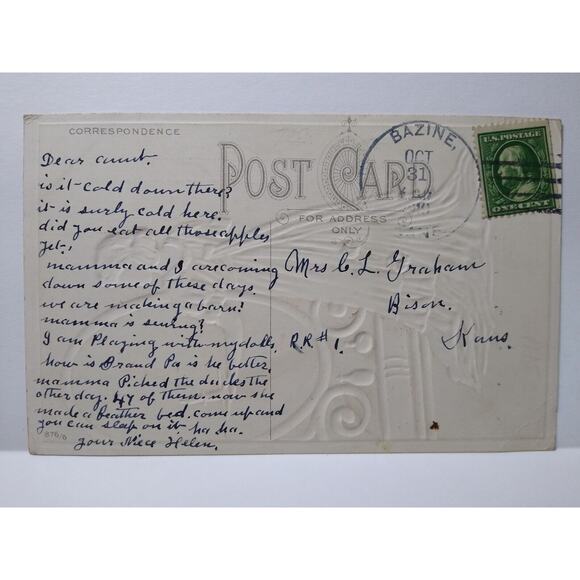 CORRESPONDENCE
POST CARD
FOR ADDRESS
ONLY
BAZINE,
OCT
31
KANS.
U.S. POSTAGE
ONE CENT
Dear aunt.
is it cold down there?
it is surly cold here.
did you eat all those apples
yet?
mamma and I are coming
down some of these days.
we are making a barn!
mamma is sewing?
I am Playing with my dolls,
how is Grand Pa is he better.
mamma Picked the ducks the
other day. 47 of them. now she
made a feather bed. come up and
you can sleap on it. ha ha.
your Niece Helen.
Mrs C. L. Graham
Bison.
R.R #1. Kans.
876/6